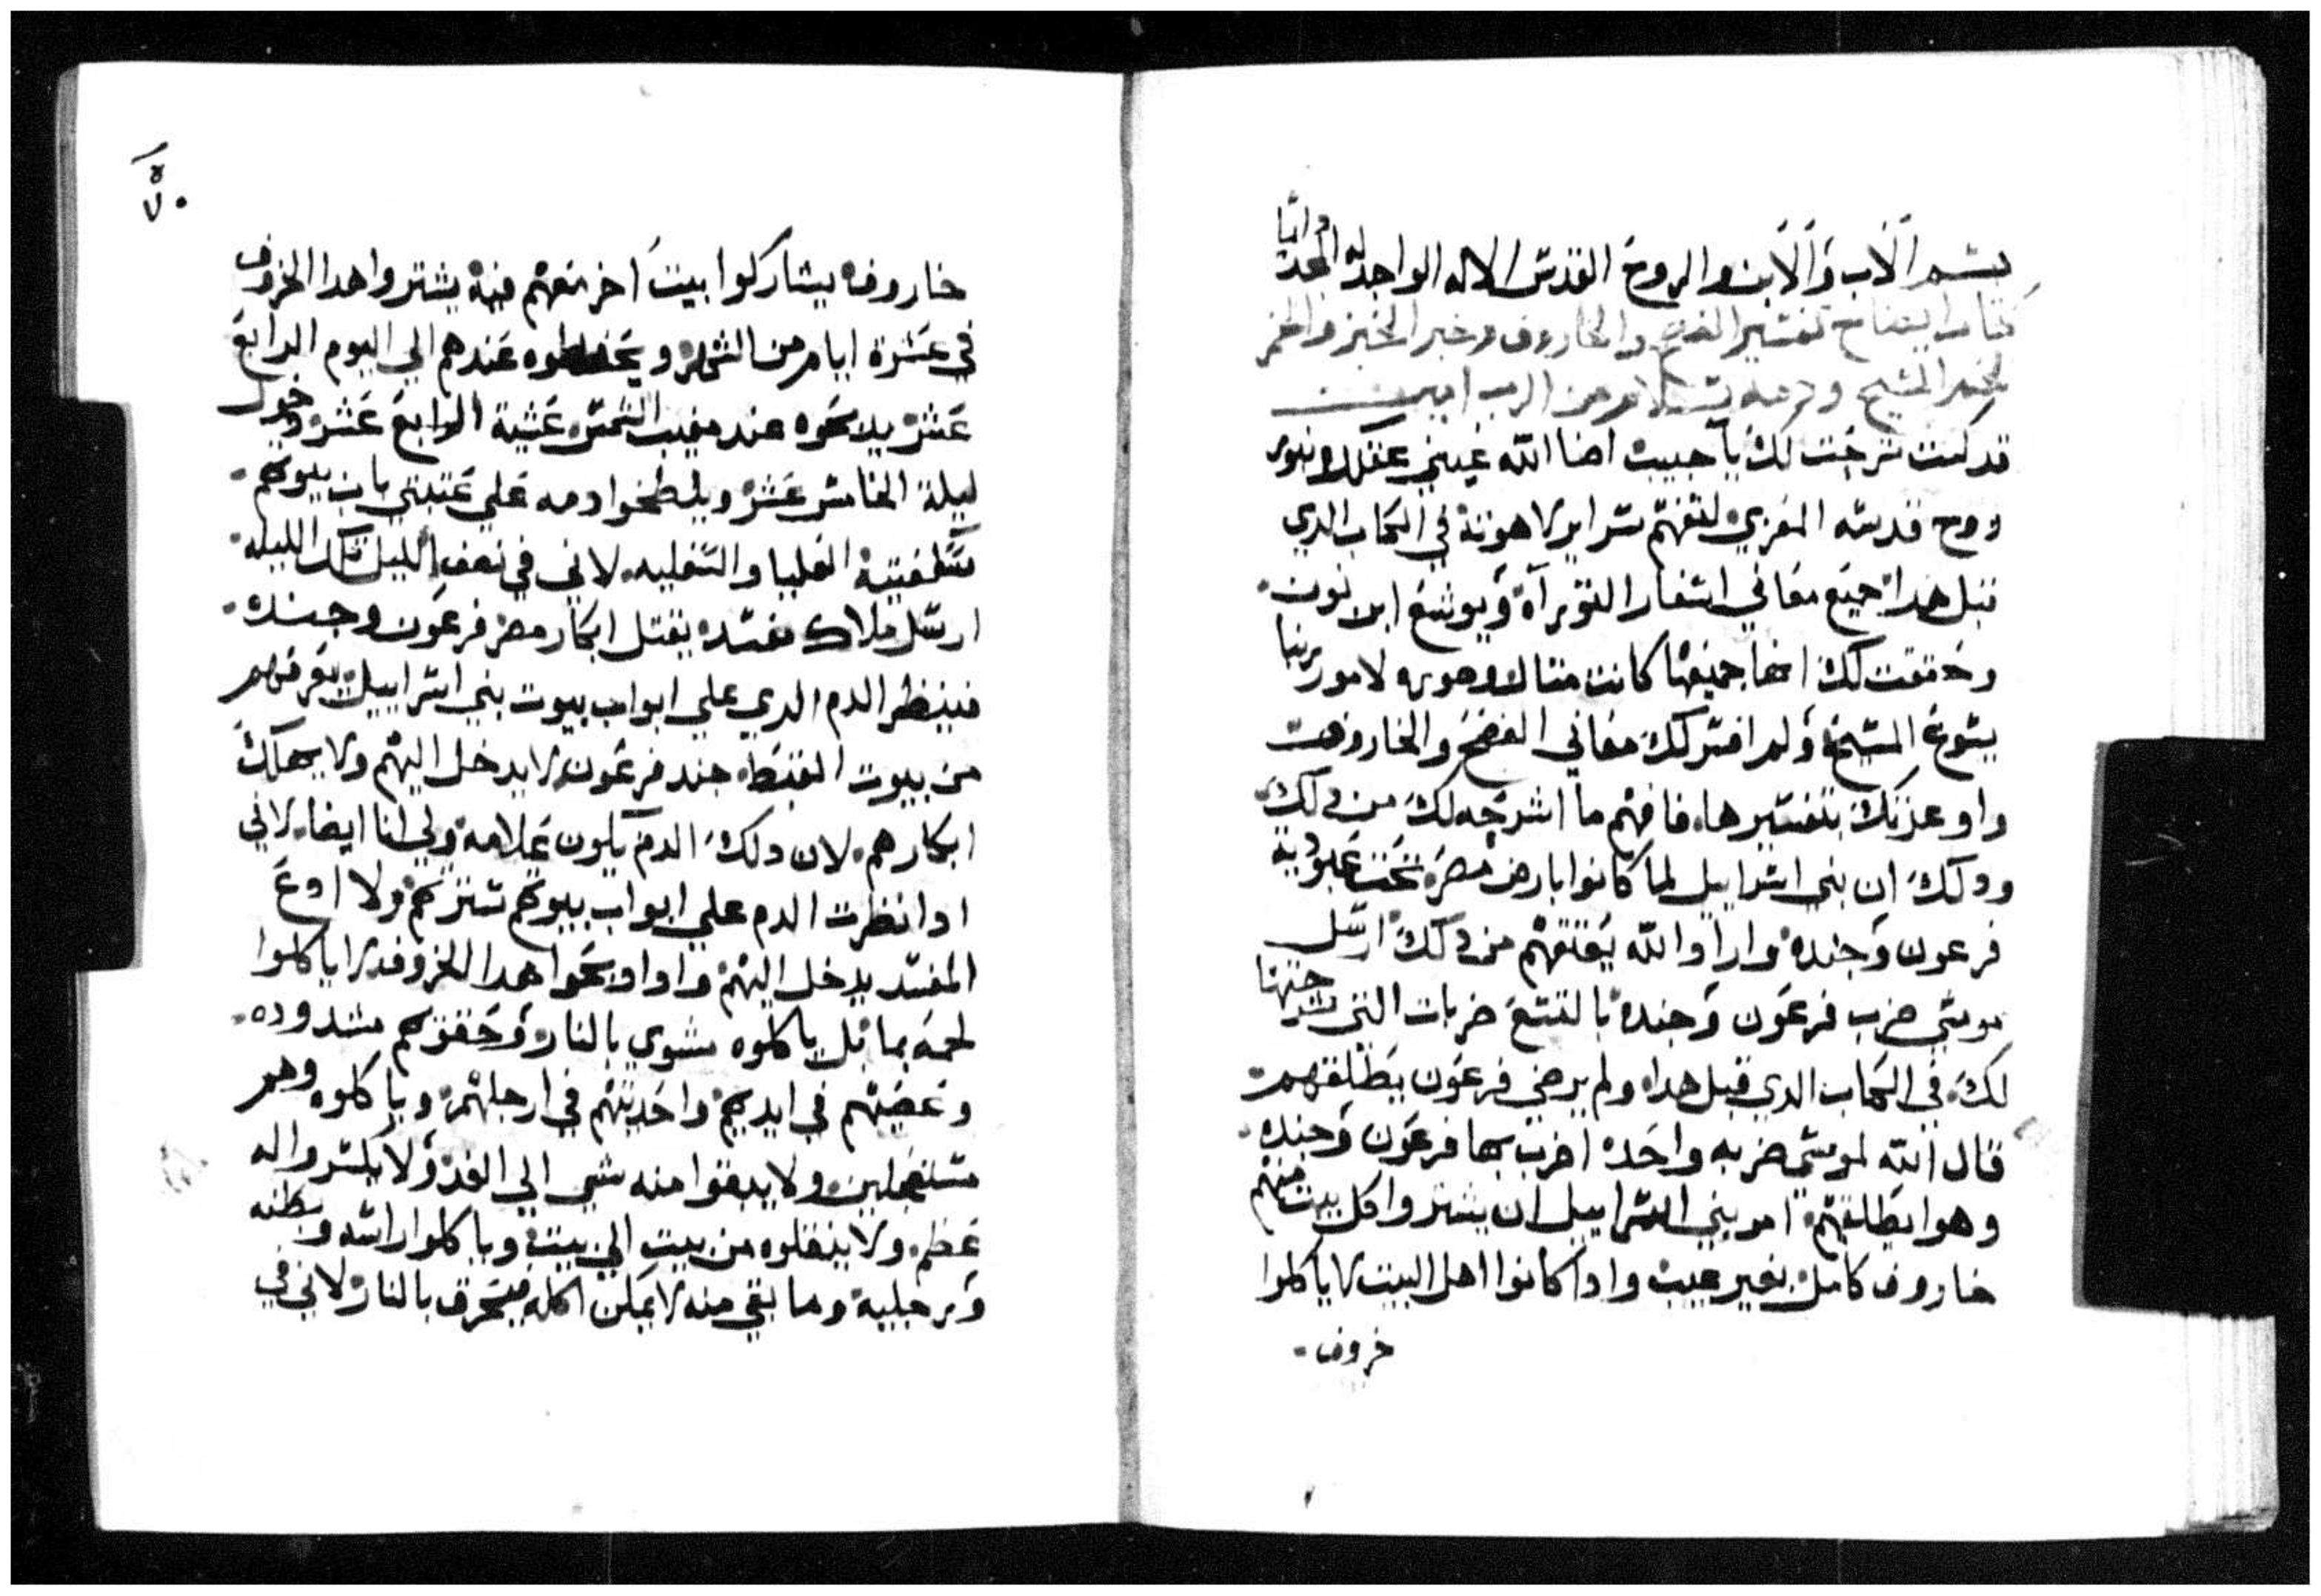 بسم الاب والابن والروح القدس الاله الواحد له المجد دائما
كتاب ايضاح تفسير الفصح والخاروف وخبر الخبز والخمر
لجسد المسيح ودمه بسلام من الرب امين
قد كنت شرحت لك يا حبيب اضا الله عيني عقلك بنور
روح قدسه المعزي لتفهم سراير لاهوته في الكتاب الدي
قبل هدا جميع معاني اسفار التوراة ويوشع ابن نون
وحققت لك انها جميعها كانت مثالا لامور ربنا
يسوع المسيح ولم افسر لك معاني الفصح والخاروف
واوعدتك بتفسيرها فافهم ما اشرحه لك من دلك
ودلك ان بني اسراييل لما كانوا بارض مصر تحت عبودية
فرعون وجنده واراد الله يعتقهم من دلك ارسل
موسى ضرب فرعون وجنده بالتسع ضربات التي شرحتها
لك في الكتاب الدي قبل هدا ولم يرضي فرعون يطلقهم
قال الله لموسى ضربه واحده اضرب بها فرعون وجنده
وهوا يطلقهم امر بني اسراييل ان يشتروا كل بيت منهم
خاروف كامل بغير عيب وادا كانوا اهل البيت لا ياكلوا
خروف
٧٠
خاروف يشاركوا بيت اخر معهم فيه يشتروا هدا الخروف
في عشرة ايام من الشهر ويحفظوه عندهم الي اليوم الرابع
عشر يدبحوه عند مغيب الشمس عشية الرابع عشر ودخول
ليلة الخامس عشر ويلطخوا دمه علي عتبتي باب بيوتهم
سقفيته العليا والسفليه لاني في نصف الليل تلك الليله
ارسل ملاك مفسد يقتل ابكار مصر فرعون وجنده
فينظر الدم الدي علي ابواب بيوت بني اسراييل يعرفهم
من بيوت القبط جند فرعون لا يدخل اليهم ولا يهلك
ابكارهم لان دلك الدم يكون علامه ولي انا ايضا لاني
ادا نظرت الدم علي ابواب بيوتهم سترتهم ولا ادع
المفسد يدخل اليهم وادا دبحوا هدا الخروف لا ياكلوا
لحمه بما بل ياكلوه مشوي بالنار وحقوهم مشدوده
وعصيهم في ايديهم واحديتهم في ارجلهم وياكلوه وهم
مستعجلين ولا يبقوا منه شي الي الغد ولا يكسروا له
عظم ولا ينقلوه من بيت الي بيت وياكلوا راسه وبطنه
ورجليه وما بقي منه لا يمكن اكله يحرق بالنار لاني في